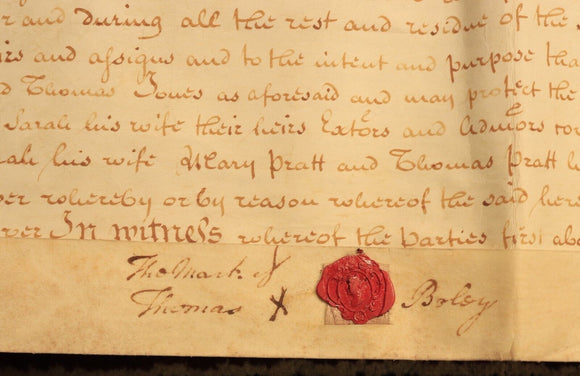 r and during all the rest and residue of the
irs and assigns and to the intent and purpose tha
d Thomas Jones as aforesaid and may protect the
Sarah his wife their heirs Extors and Admors
rah his wife Mary Pratt and Thomas Pratt
ver whereby or by reason whereof the said here
ver In witness whereof the parties first abo
The Mark of
Thomas X Boley